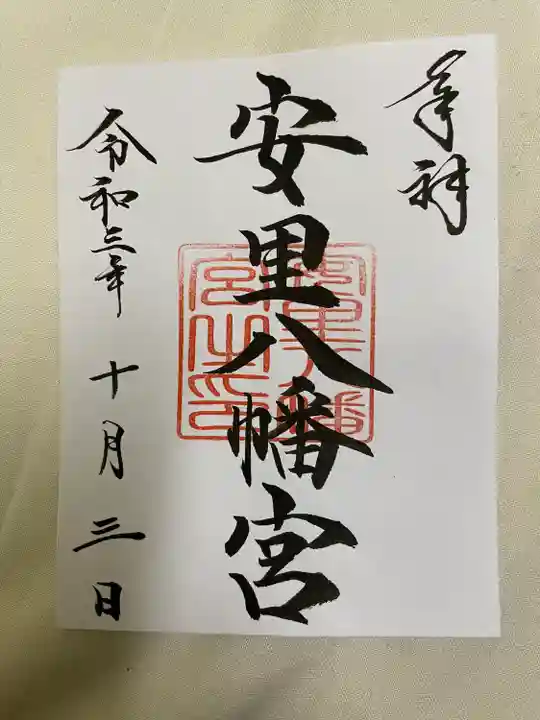 奉拝
安里八幡宮
安里八幡
宮之印
令和三年 十月三日